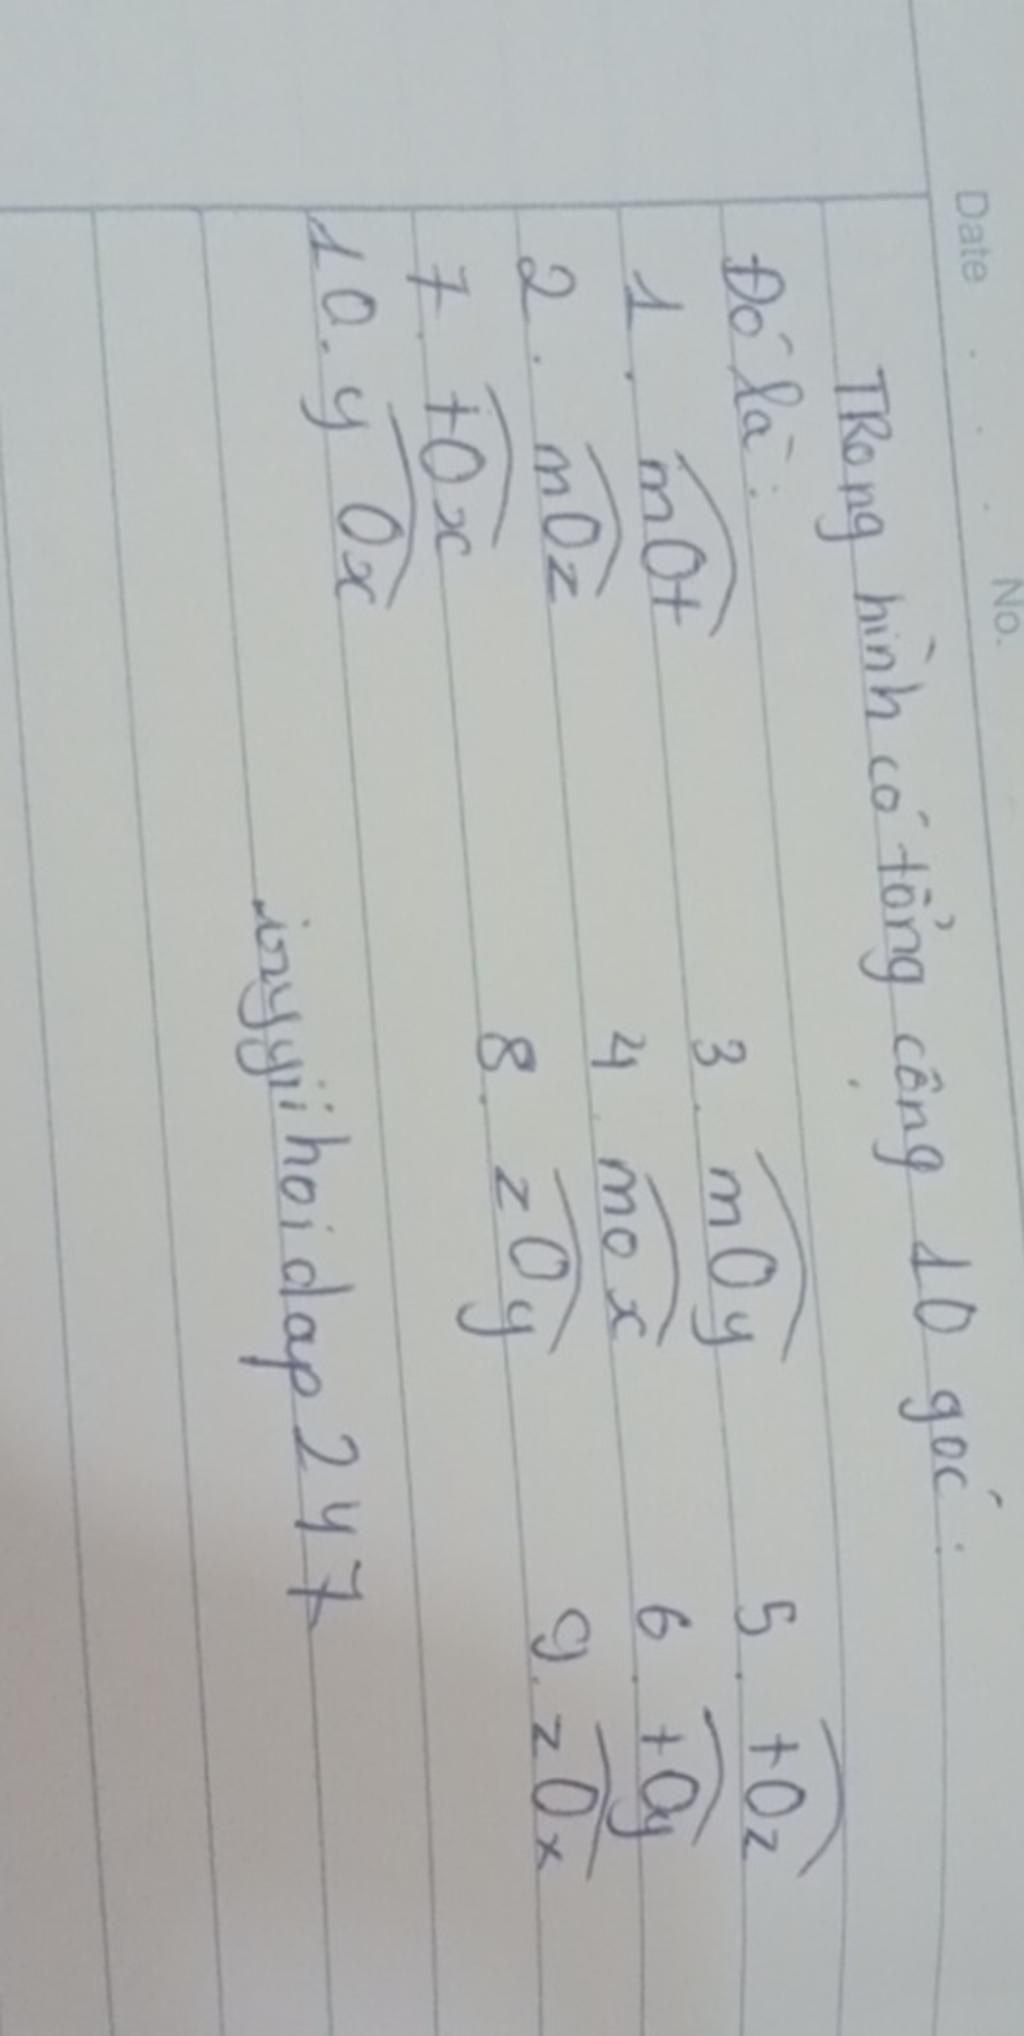 Date . . . No.
TRong hình có tổng cộng 10 góc :
Đó là :
1. mOt 3. mOy 5. tOz
2. mOz 4. mox 6. tOy
7. tOx 8. zOy 9. zOx
10. y Ox
inyyihoidap247